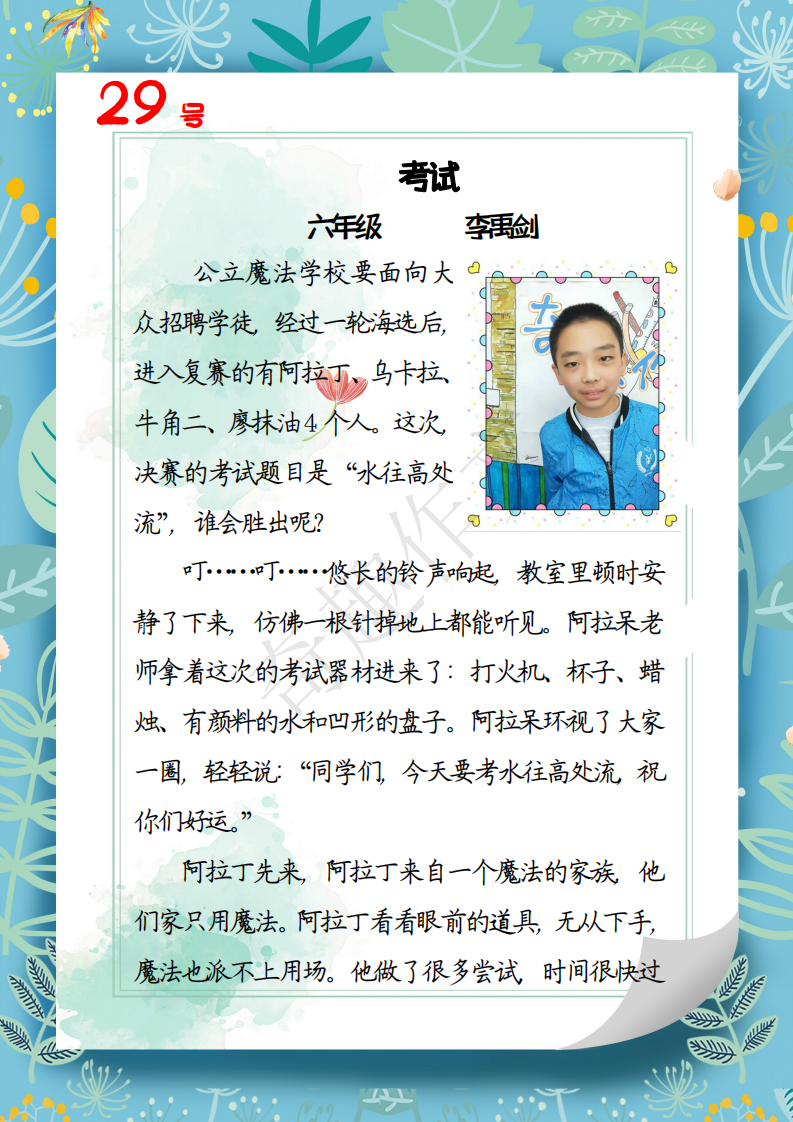 29号
考试
六年级 李禹剑
公立魔法学校要面向大
众招聘学徒，经过一轮海选后，
进入复赛的有阿拉丁、乌卡拉、
牛角二、廖抹油4个人。这次，
决赛的考试题目是“水往高处
流”，谁会胜出呢？
叮……叮……悠长的铃声响起，教室里顿时安
静了下来，仿佛一根针掉地上都能听见。阿拉呆老
师拿着这次的考试器材进来了：打火机、杯子、蜡
烛、有颜料的水和凹形的盘子。阿拉呆环视了大家
一圈，轻轻说：“同学们，今天要考水往高处流，祝
你们好运。”
阿拉丁先来，阿拉丁来自一个魔法的家族，他
们家只用魔法。阿拉丁看看眼前的道具，无从下手，
魔法也派不上用场。他做了很多尝试，时间很快过
奇趣作